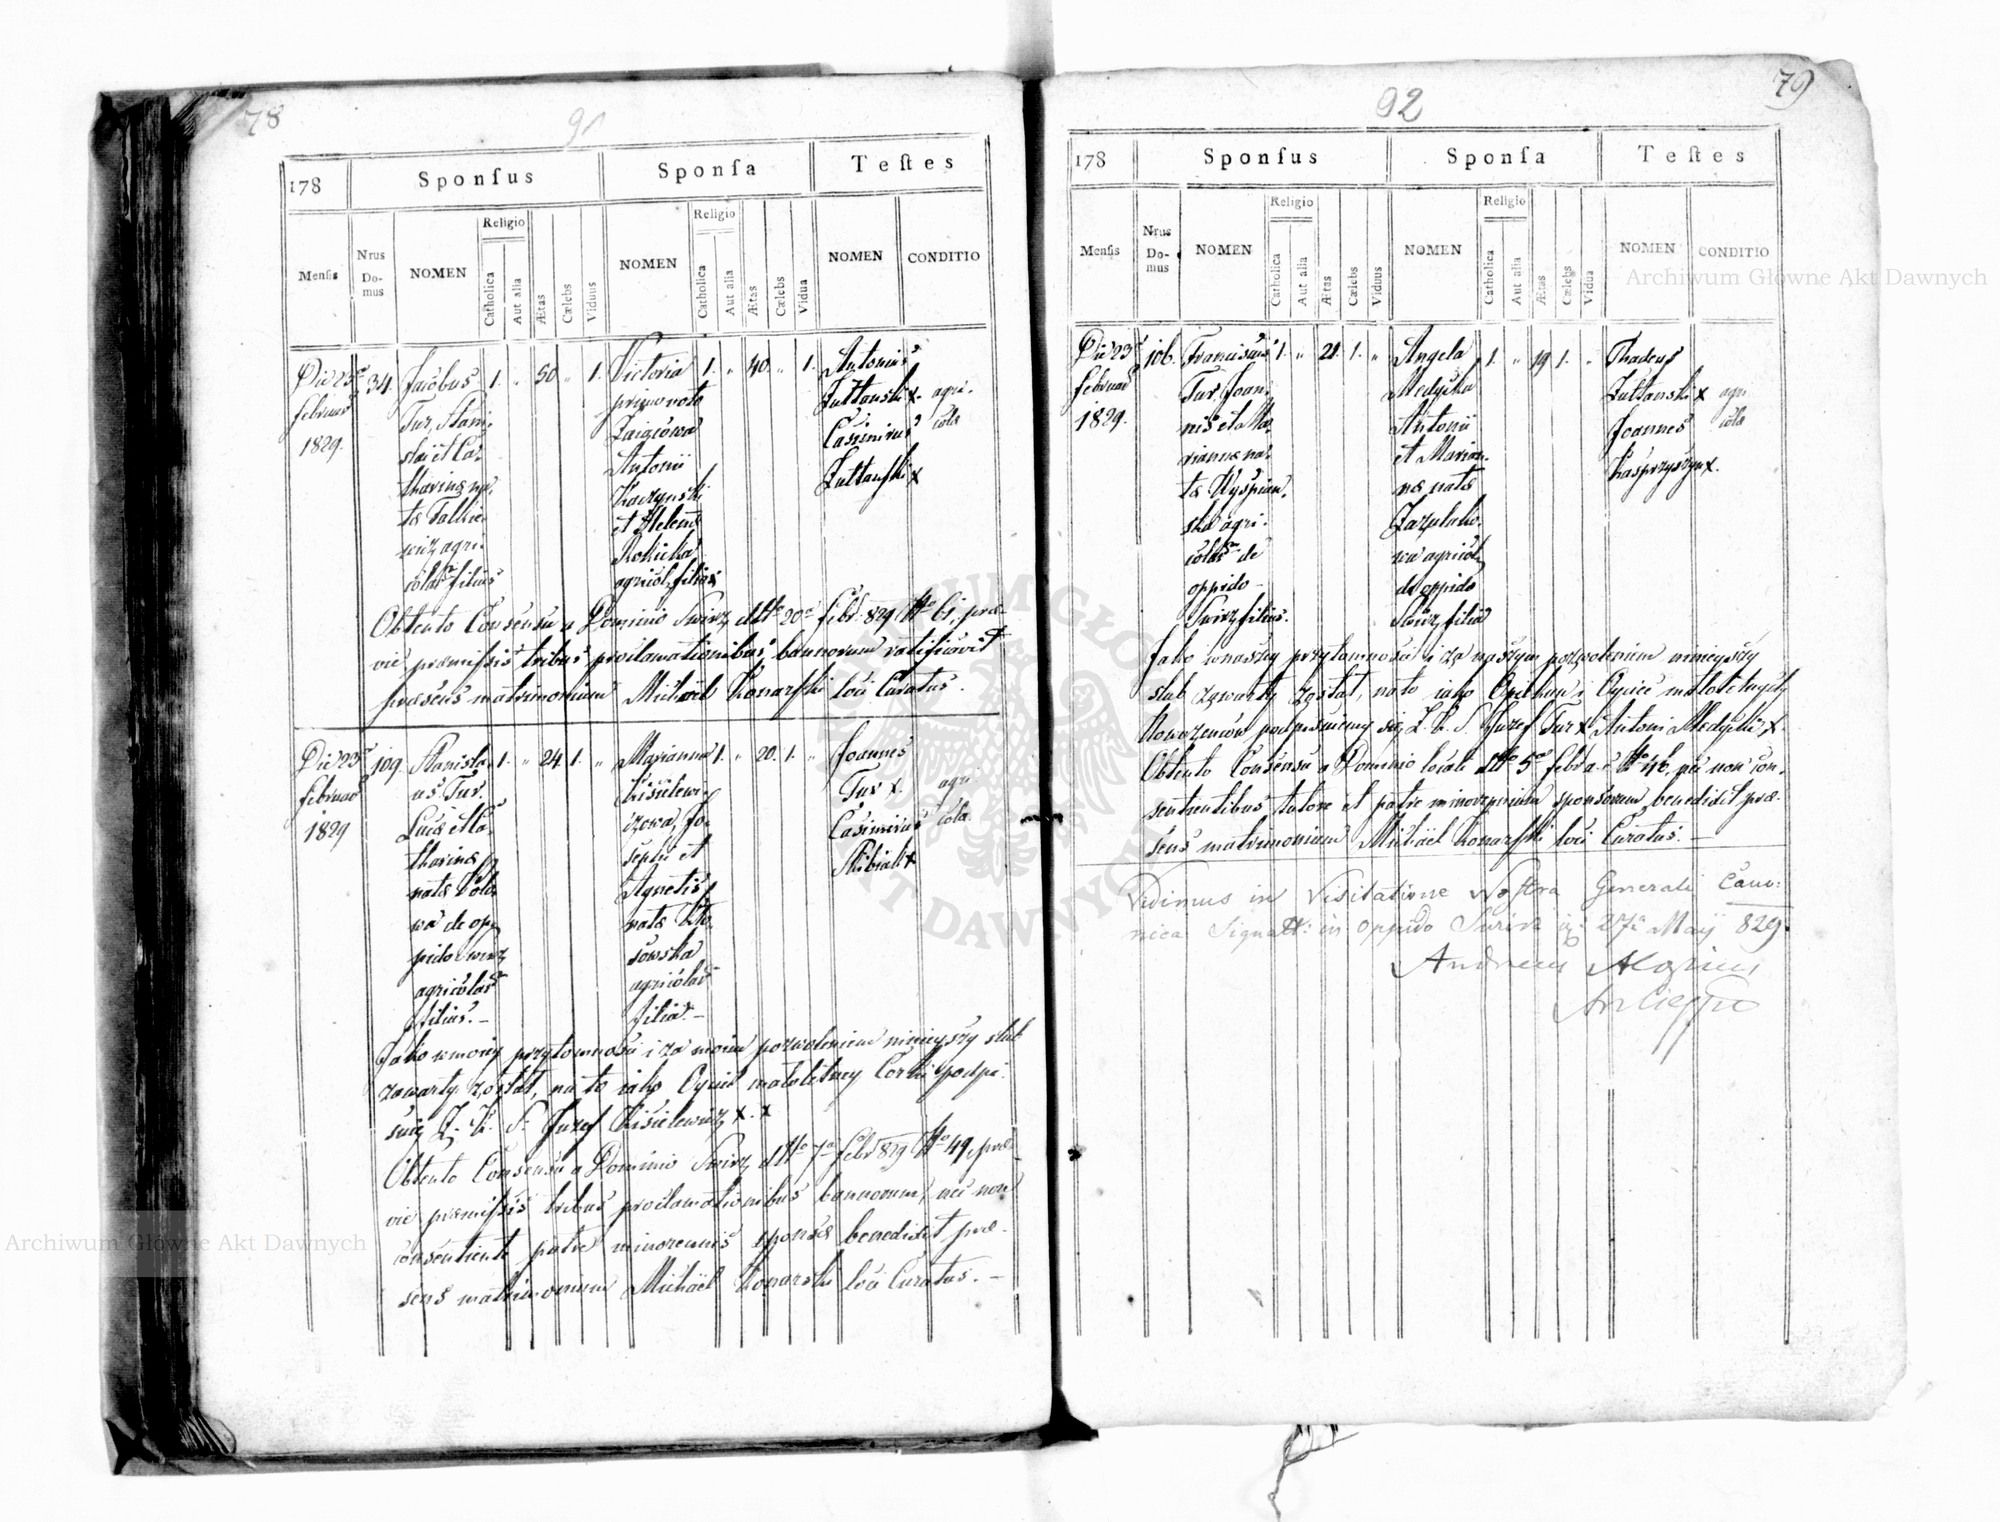 78
91
178
Sponſus
Sponſa
Teſtes
Menſis
Nrus Do- mus
NOMEN
Religio
Catholica
Aut alia
Ætas
Cælebs
Viduus
NOMEN
Religio
Catholica
Aut alia
Ætas
Cælebs
Vidua
NOMEN
CONDITIO
Die 23
februar
1829.
34.
Jacobus
Tur, Stani-
slai et Ca-
tharinæ na-
ta
agri-
colar filius
1. „ 50 „ 1.
Victoria
primo voto
Antonii
et Helena
Rokicka
agricol. filia
1. „ 40. „ 1.
Antonius
Zułtanski x.
Casimirus
Zułtanski x
agri-
cola
Obtento Consensu a Dominio Swirz dtto 20 febr. 829 Nro 61, præ-
vie præmissis tribus proclamationibus bannorum ratificavit
præsens matrimonium Michael Konarski loci Curatus.
Die 23
februar
1829
109.
Stanisla-
us Tur,
Lucæ et Ca-
tharinæ
nata
de op-
pido Swirz
agricolar
filius. –
1. „ 24 1. „
Marianna
Kisielewi-
czowa, Jo-
sephi et
Agnetis
nata
sowska
agricolar
filia. –
1. „ 20. 1. „
Joannes
Tur x.
Casimirus
Skibicki x
agri-
cola
Jako w moiey przytomności i za moim pozwoleniem ninieyszy slub
zawarty został, na to iako Oyciec małoletney Corki podpi-
suię Z. K. S. Juzef Kisielewicz x. x
Obtento Consensu a Dominio Swirz dtto 7 febr 829 Nro 49, præ-
vie præmissis tribus proclamationibus bannorum, nec non
consentiente patre minorennis sponsæ benedixit præ-
sens matrimonium Michael Konarski loci Curatus. –
79
92
178
Sponſus
Sponſa
Teſtes
Menſis
Nrus Do- mus
NOMEN
Religio
Catholica
Aut alia
Ætas
Cælebs
Viduus
NOMEN
Religio
Catholica
Aut alia
Ætas
Cælebs
Vidua
NOMEN
CONDITIO
Die 23
februar
1829.
106.
Franciscus
Tur, Joan-
nis et Ma-
riannæ na-
ta Wyspian-
ska agri-
colar de
oppido –
Swirz filius.
1. „ 21. 1. „
Angela
Medycka
Antonii
et Marian-
næ nata
agricol.
de oppido
Swirz filia
1. „ 19 1. „
Thadeus
Zułtanski x
Joannes
Kasprzyszyn x.
agri-
cola
Jako w naszey przytomności i za naszym pozwoleniem ninieyszy
slub zawarty został, na to iako Opiekun i Oyciec małoletnych
Nowozencow podpisuiemy się Z. K. S. Juzef Tur x Antoni Medycki x.
Obtento Consensu a Dominio locali dtto 5 febr a. c Nro 46, nec non con-
sentientibus tutore et patre minorennium sponsorum benedixit præ-
sens matrimonium Michael Konarski loci Curatus. –
Vidimus in Visitatione Nostra Generali Cano-
nica Signatt: in oppido Swirz 27 Maij 829.
Andreas Aloysius
Archieppo
Archiwum Główne Akt Dawnych
Archiwum Główne Akt Dawnych
ARCHIWUM GŁÓWNE AKT DAWNYCH